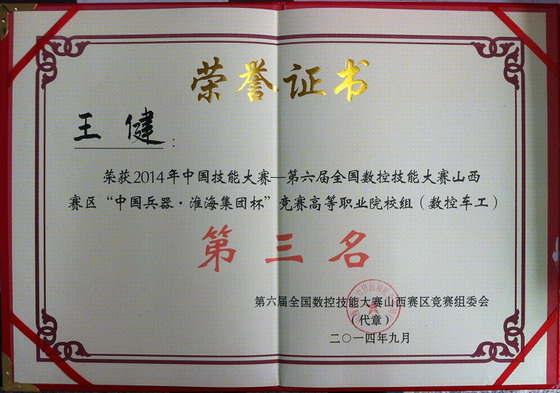 荣誉证书
王健：
荣获2014年中国技能大赛—第六届全国数控技能大赛山西
赛区“中国兵器·淮海集团杯”竞赛高等职业院校组（数控车工）
第三名
第六届全国数控技能大赛山西赛区竞赛组委会
（代章）
二〇一四年九月